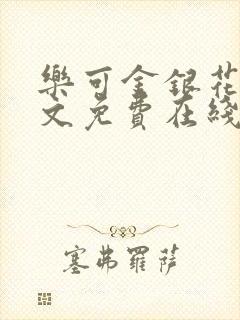 樂可金銀花
文免費在綫
塞弗羅薩